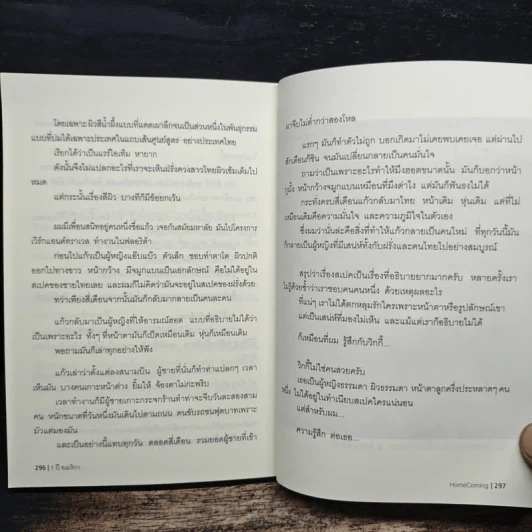 โดยเฉพาะ ผิวสีน้ำผึ้งแบบที่แดดเผาลึกจนเป็นส่วนหนึ่งในพันธุกรรม
แบบที่บ่มได้เฉพาะประเทศในแถบเส้นศูนย์สูตร อย่างประเทศไทย
เรียกได้ว่าเป็นแรร์ไอเท็ม หายาก
ดังนั้นจึงไม่แปลกอะไรที่เราจะเห็นฝรั่งควงสาวไทยผิวเข้มเดินไป
หมด
แต่กระนั้นเรื่องสีผิว บางทีก็มีข้อยกเว้น
ผมมีเพื่อนสนิทอยู่คนหนึ่งชื่อแก้ว เจอกันสมัยมหาลัย มันไปโครงการ
เวิร์กแอนด์ทราเวล ทำงานในฟลอริด้า
ก่อนไปแก้วเป็นผู้หญิงแอ๊บแบ๊ว ตัวเล็ก ชอบทำตาโต ผิวปกติ
ออกไปทางขาว หน้ากว้าง มีจมูกแบนเป็นเอกลักษณ์ คือไม่ได้อยู่ใน
สเปคของชายไทยเลย และผมก็ไม่คิดว่ามันจะอยู่ในสเปคของฝรั่งด้วย
ทว่าเพียงสี่เดือนจากนั้นมันก็กลับมากลายเป็นคนละคน
แก้วกลับมาเป็นผู้หญิงที่ให้อารมณ์ฮอต แบบที่อธิบายไม่ได้ว่า
เป็นเพราะอะไร ทั้งๆ ที่หน้าตามันก็เป็ดเหมือนเดิม หุ่นก็เหมือนเดิม
พอถามมันก็เล่าทุกอย่างให้ฟัง
แก้วเล่าว่าตั้งแต่ลงสนามบิน ผู้ชายที่นั่นก็ทำท่าแปลกๆ เวลา
เห็นมัน บางคนเกาะหน้าต่าง ยิ้มให้ จ้องตาไม่กะพริบ
เวลาทำงานก็มีผู้ชายเกาะกระจกร้านทำท่าจะจีบวันละสองสาม
คน หนักขนาดที่วันหนึ่งมันเดินไปตามถนน คนขับรถชนฟุตบาทเพราะ
มัวแต่มองมัน
และเป็นอย่างนี้แทบทุกวัน ตลอดสี่เดือน รวมยอดผู้ชายที่เข้า
296 | 1 ปี อเมริกา
มาจีบไม่ต่ำกว่าสองโหล
แรกๆ มันก็ทำตัวไม่ถูก บอกเกิดมาไม่เคยพบเคยเจอ แต่ผ่านไป
สักเดือนก็ชิน จนมันเปลี่ยนกลายเป็นคนมั่นใจ
ถามว่าเป็นเพราะอะไรทำให้มึงฮอตขนาดนั้น มันก็บอกว่าหน้า
กูมั้ง หน้ากว้างจมูกแบนเหมือนที่มึงด่าไง แต่มันก็ฟันธงไม่ได้
กระทั่งครบสี่เดือนแก้วกลับมาไทย หน้าเดิม หุ่นเดิม แต่ที่ไม่
เหมือนเดิมคือความมั่นใจ และความภูมิใจในตัวเอง
ซึ่งผมว่านั่นล่ะคือสิ่งที่ทำให้แก้วกลายเป็นคนใหม่ ที่ทุกวันนี้มัน
ก็กลายเป็นผู้หญิงที่มีเสน่ห์ทั้งกับฝรั่งและคนไทยไปอย่างสมบูรณ์
สรุปว่าเรื่องสเปคเป็นเรื่องที่อธิบายยากมากครับ หลายครั้งเรา
ไม่รู้ด้วยซ้ำว่าเราชอบคนคนหนึ่ง ด้วยเหตุผลอะไร
ที่แน่ๆ เราไม่ได้ตกหลุมรักใครเพราะหน้าตาหรือรูปลักษณ์เขา
แต่เป็นเสน่ห์ที่มองไม่เห็น และแม้แต่เราก็อธิบายไม่ได้
ก็เหมือนที่ผม รู้สึกกับวิกกี้...
วิกกี้ไม่ใช่คนสวยครับ
เธอเป็นผู้หญิงธรรมดา ผิวธรรมดา หน้าตาลูกครึ่งประหลาดๆ คน
หนึ่ง ไม่ได้อยู่ในทำเนียบสเปคใครแน่นอน
แต่สำหรับผม...
ความรู้สึก ต่อเธอ...
HomeComing | 297